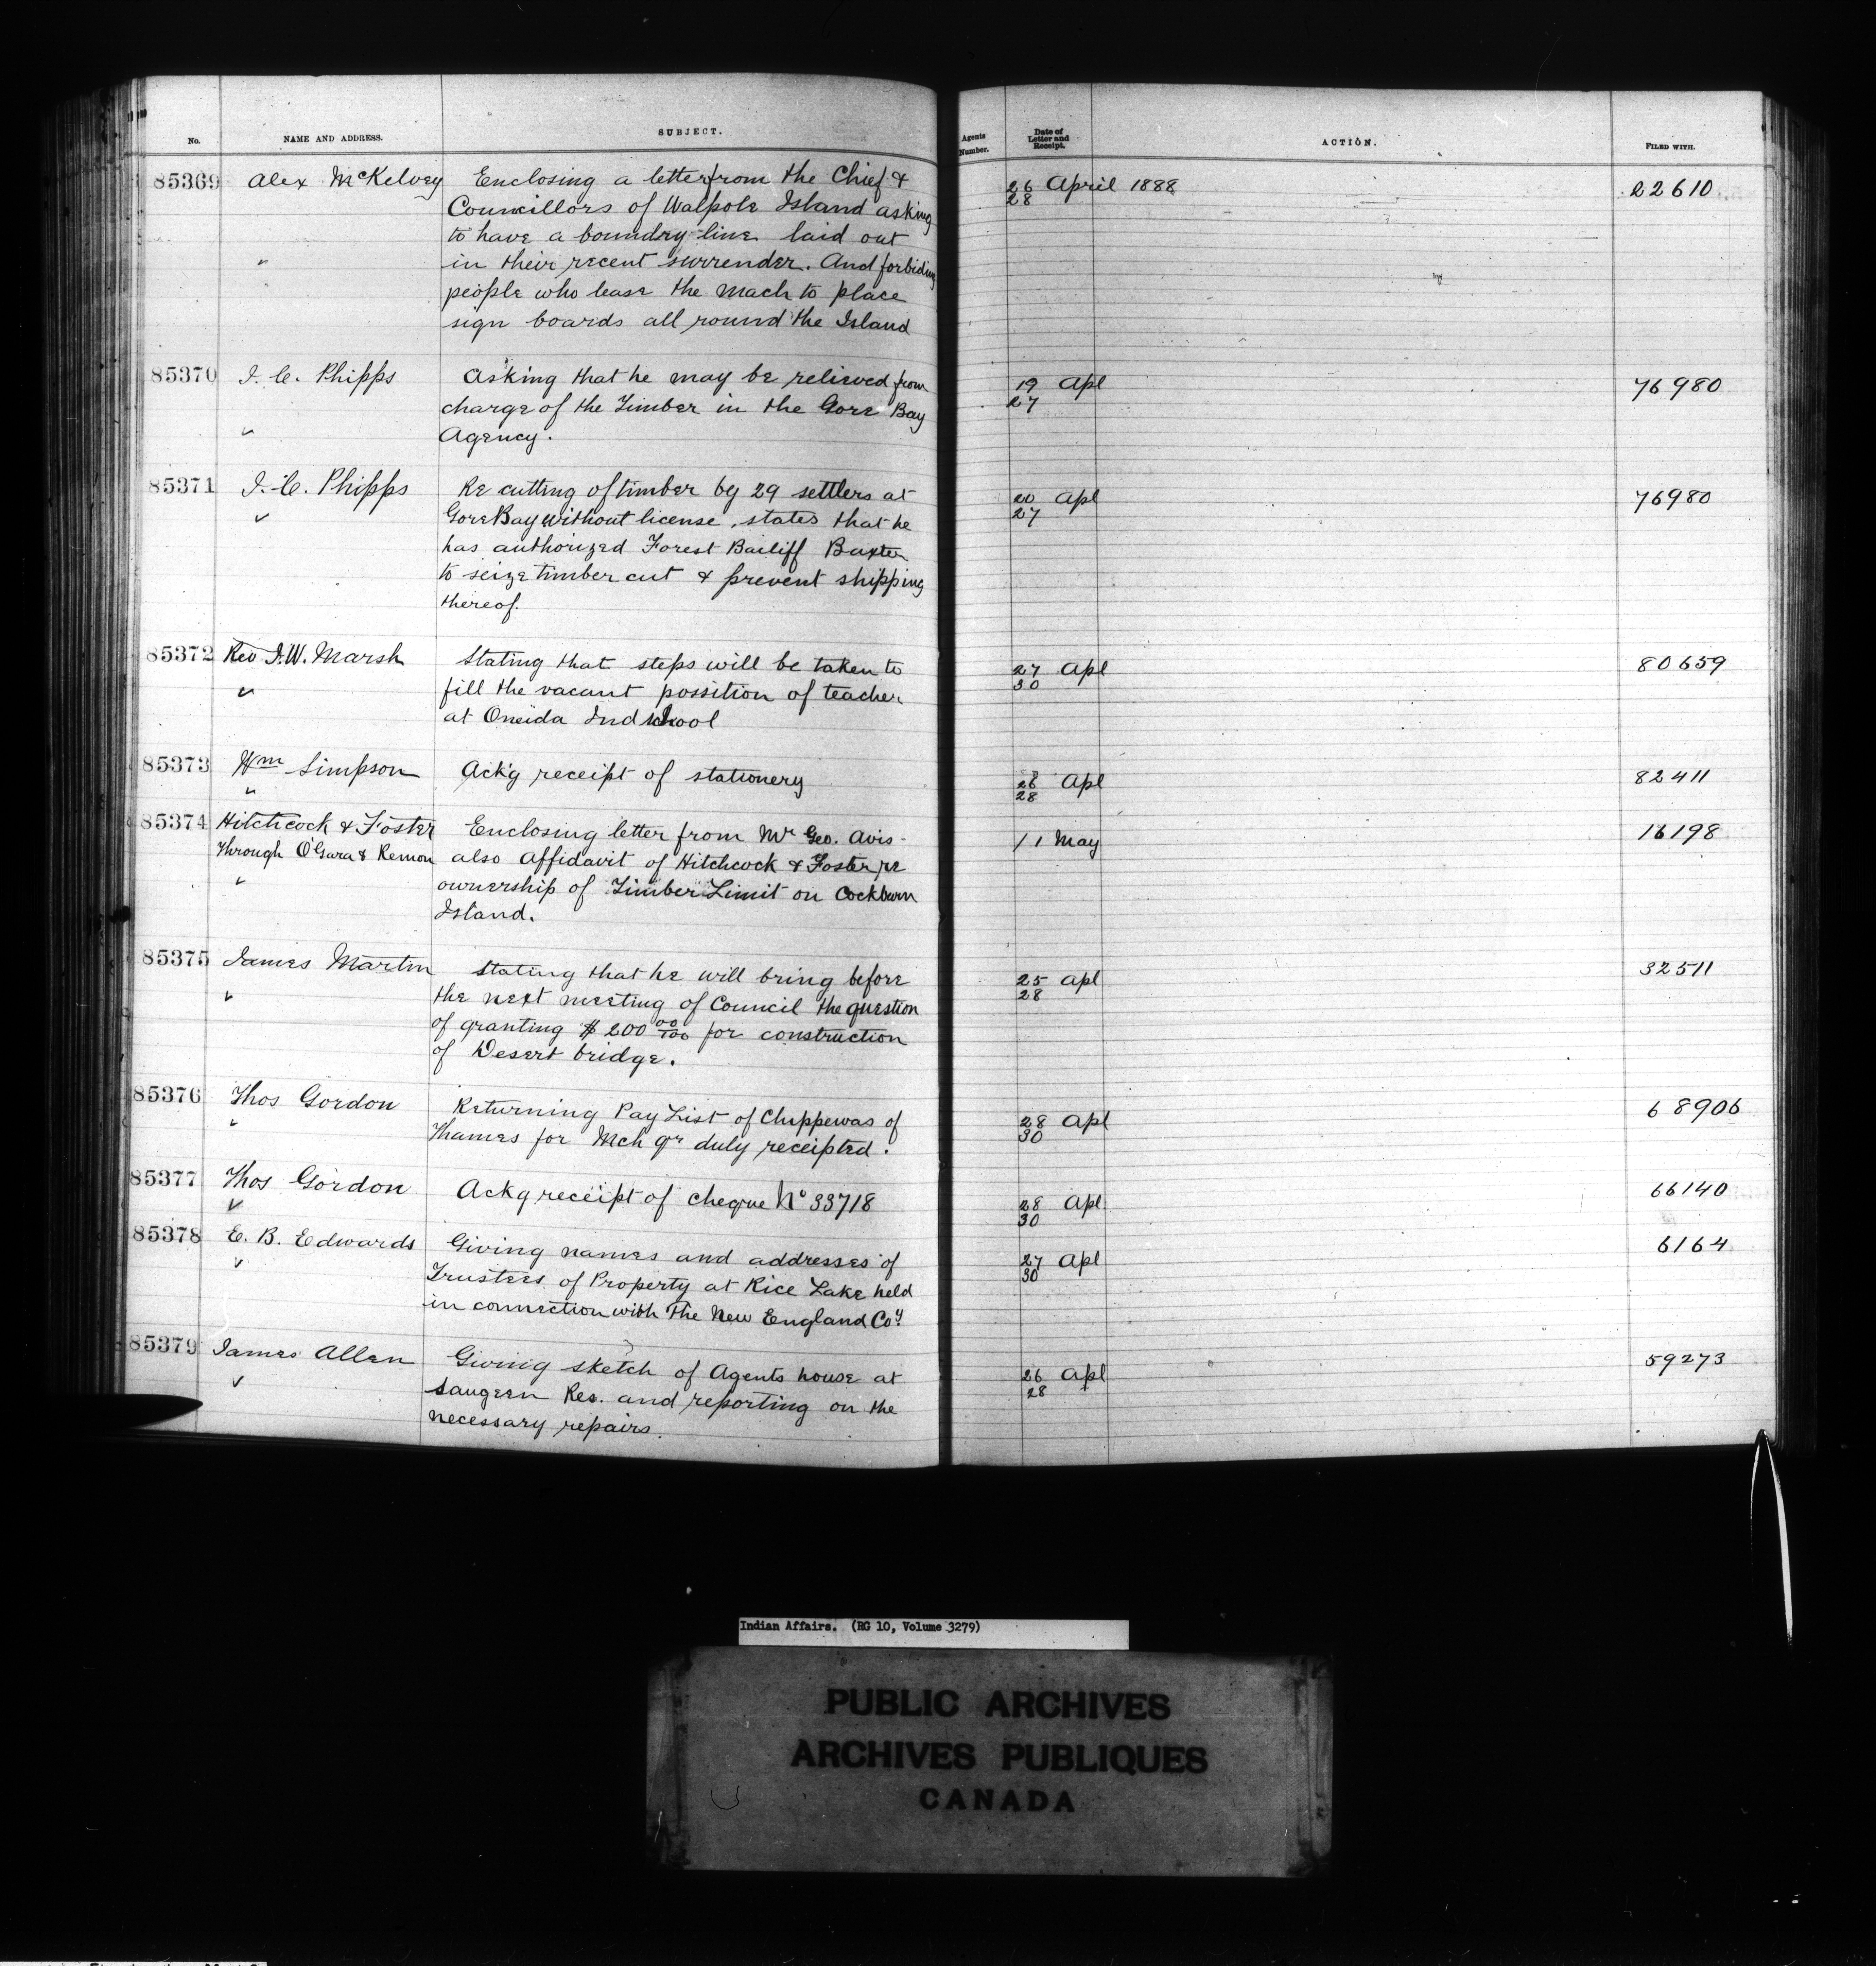 No. NAME AND ADDRESS. SUBJECT. Agents Number. Date of Letter and Receipt. ACTION. FILED WITH.
85369 Alex McKelvey Enclosing a letter from the Chief & 26 April 1888 22610
Councillors of Walpole Island asking 28
to have a boundry line laid out
in their recent surrender. And forbiding
people who lease the Mach to place
sign boards all round the Island
85370 J. C. Phipps Asking that he may be relieved from 19 Apl 76980
charge of the Timber in the Gore Bay 27
Agency.
85371 J. C. Phipps Re cutting of timber by 29 settlers at 20 Apl 76980
Gore Bay without license, states that he 27
has authorized Forest Bailiff Baxter
to seize timber cut & prevent shipping
thereof.
85372 Rev J.W. Marsh Stating that steps will be taken to 27 Apl 80659
fill the vacant possition of teacher 30
at Oneida Ind school
85373 Wm Simpson Ack'g receipt of stationery 26 Apl 82411
28
85374 Hitchcock & Foster Enclosing letter from Mr Geo. Avis - 1 1 May 16198
Through O'Gara & Remon also Affidavit of Hitchcock & Foster re
ownership of Timber Limit on Cockburn
Island.
85375 James Martin Stating that he will bring before 25 Apl 32511
the next meeting of Council the question 28
of granting $200 00/100 for construction
of Desert bridge.
85376 Thos Gordon Returning Pay List of Chippewas of 28 Apl 68906
Thames for Mch qr duly receipted. 30
85377 Thos Gordon Ackg receipt of cheque No 33718 28 Apl 66140
30
85378 E. B. Edwards Giving names and addresses of 27 Apl 6164
Trustees of Property at Rice Lake held 30
in connection with The New England Coy.
85379 James Allen Giving sketch of Agents house at 26 Apl 59273
Saugeen Res. and reporting on the 28
necessary repairs.
Indian Affairs. (RG 10, Volume 3279)
PUBLIC ARCHIVES
ARCHIVES PUBLIQUES
CANADA